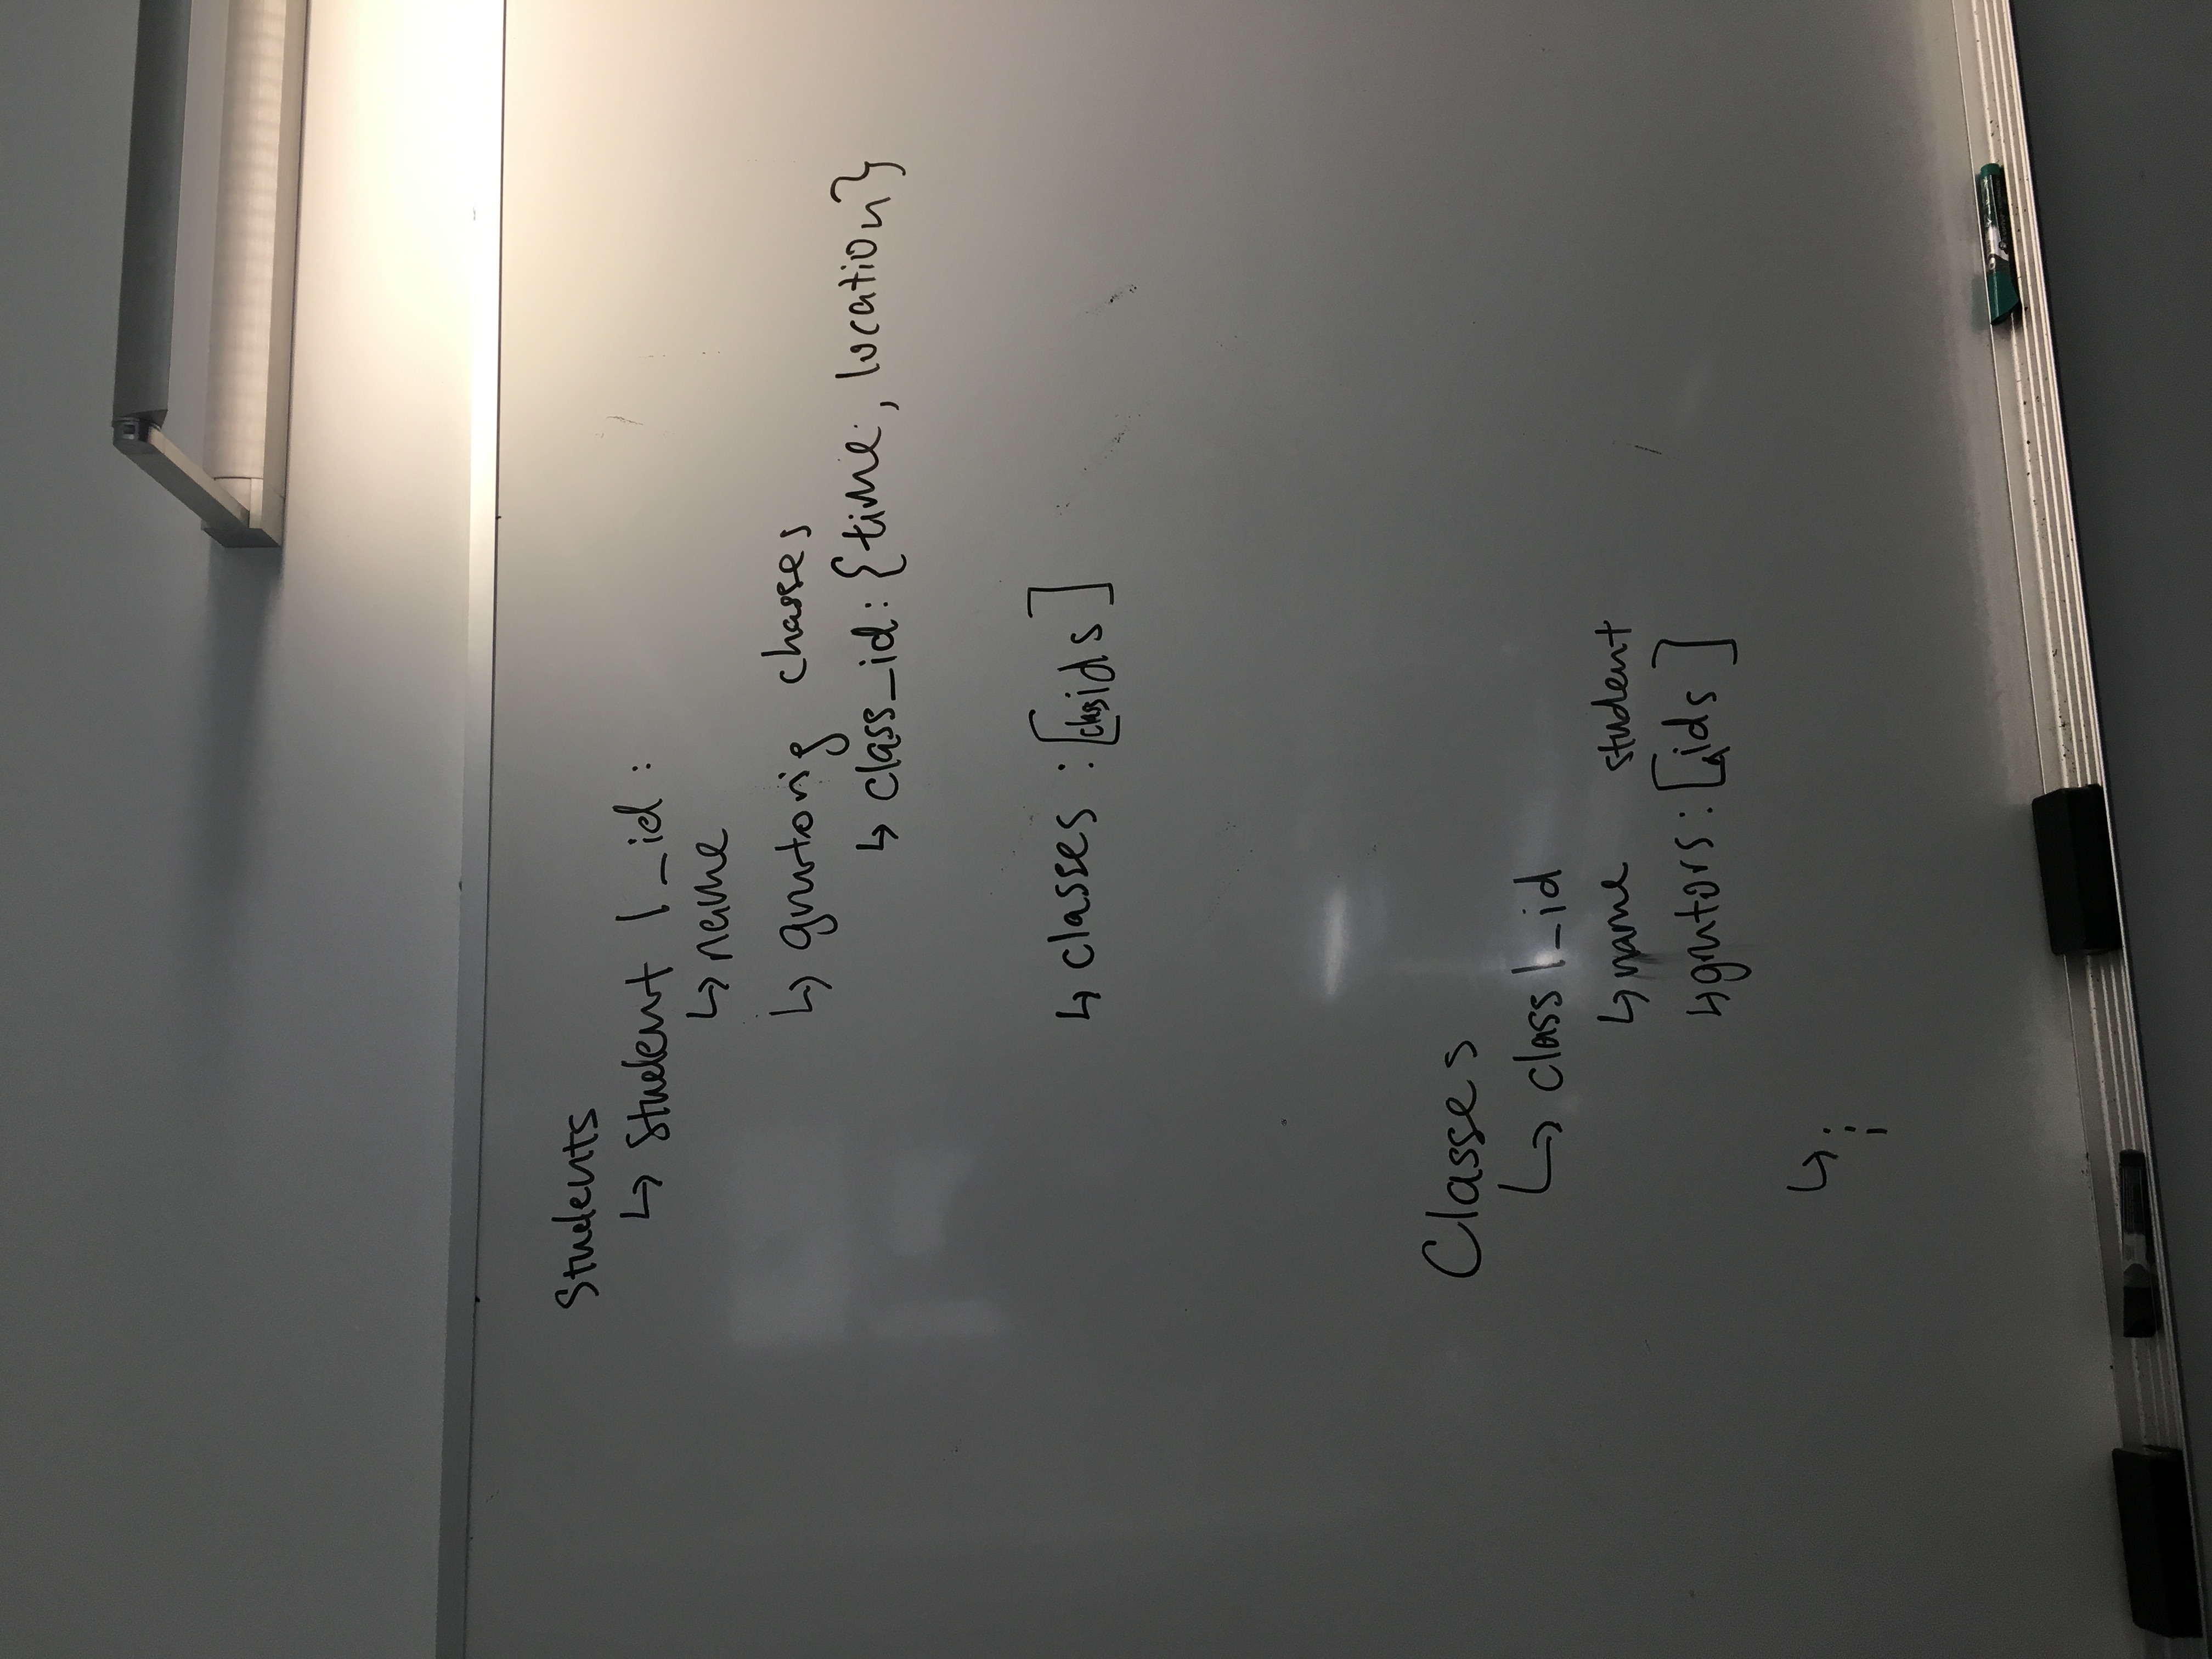 Students
↳ student 1_id :
↳ name
↳ gnutoring classes
↳ class_id: {time, location}
↳ classes : [class ids]
Classes
↳ class1_id
↳ name
↳ gnutors: [student ids]
↳ ⋮